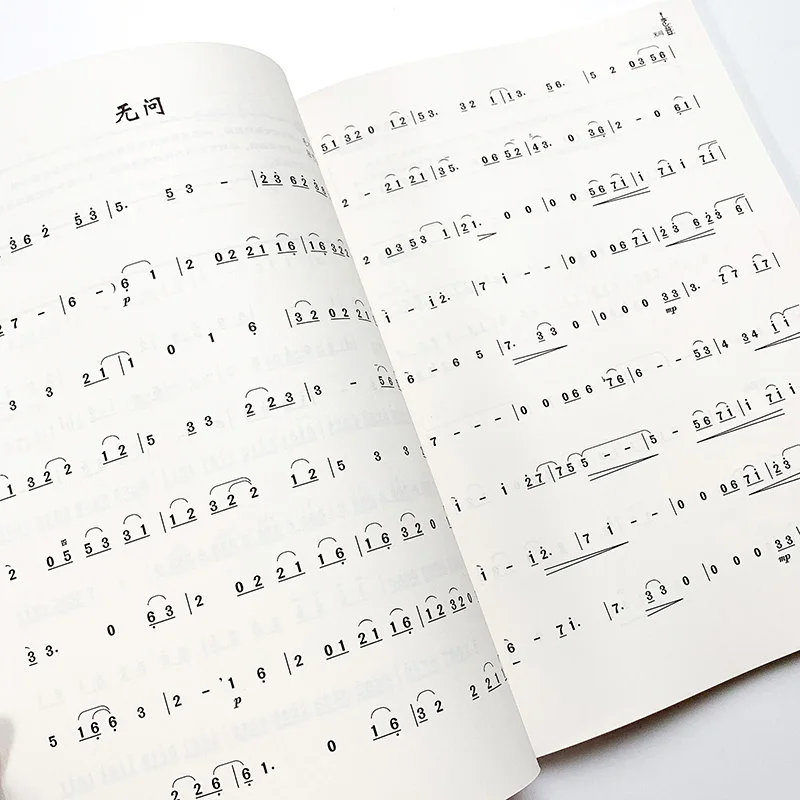 无问
3 6 2 5 3 | 5. 5 3 - | 2 3 6 2 3
2 7 - | 6 - ) 6 1 | 2 0 2 2 1 1 6 | 1 6 3 2 2
p
3 3 2 1 | 1 0 1 6 | 3 2 0 2 2 1
1 3 2 2 2 1 2 | 5 3 3 2 2 3 | 3 - 5 6
2 0 5 5 3 3 1 | 1 2 3 2 2 1 2 | 5 3 3
3 3. 0 6 3 | 2 0 2 2 1 1 6 | 1 6 3 2 0
5 1 6 6 3 | 2 - 1 6 | 2 0 1 2 1 1 6 | 1 2 3 2 0
p
2 2 6 | 6 1. 0 1 6 | 3 2 2 2 1
无问
5 1 3 2 0 1 2 | 5 3. 3 2 1 | 1 3. 5 6. | 5 2 0 3 5 6 |
2 - 2 1 2 1 | 3 5. 0 6 5 2 | 4 3. 0 3 6 | 2 - 0 6 1 |
2 0 3 5 3 1 | 2 1. 0 0 | 0 0 5 6 7 i | i 7 i i 7 i |
i - i 2. | 7 i - - | 0 0 0 6 7 i | 2 3 6 2 3 6 |
6 - 6 5 | 7. 3 3 0 | 0 0 0 3 3 | 3. 7 7 i 7 |
mp
7 - - - | 0 0 0 6 6 7 6 | 6 - - 5 3 | 4 3 4 i i
i - i 2 7 | 7 5 5 - - | 5 - 5 6 7 i | i 7 i i
i - i 2. | 7 i - - | 0 0 0 6 7 i | 2 3
6 - 7 i. | 7. 3 3 0 | 0 0 0 3 3 |
mp